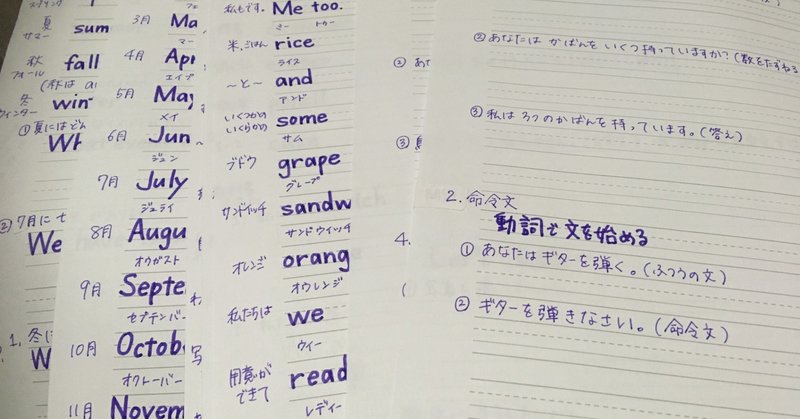 スプリング
夏 sum
サマー
秋 fall
フォール
(秋は au
冬 win
ウィンター
①夏にはどん
Wh
②7月にも
We
1. 冬に
W
3月 Ma
マー
4月 Apr
エイプ
5月 May
メイ
6月 Jun
ジュン
7月 July
ジュライ
8月 Augu
オウガスト
9月 Septe
セプテンバー
10月 Octob
オクトーバー
11月 Novem
私もです。 Me too.
ミー トゥー
米、ごはん rice
ライス
〜と〜 and
アンド
いくつかの
いくらかの some
サム
ブドウ grape
グレープ
サンドイッチ sandw
サンドウィッチ
オレンジ orang
オウレンジ
私たちは we
ウィー
用意が
できて read
レディー
② あな
③
4.
②あなたは かばんを いくつ 持っていますか?(数をたずねる
③私は 3つのかばんを 持っています。(答え)
2. 命令文
動詞で文を始める
① あなたはギターを弾く。(ふつうの文)
② ギターを弾きなさい。(命令文)